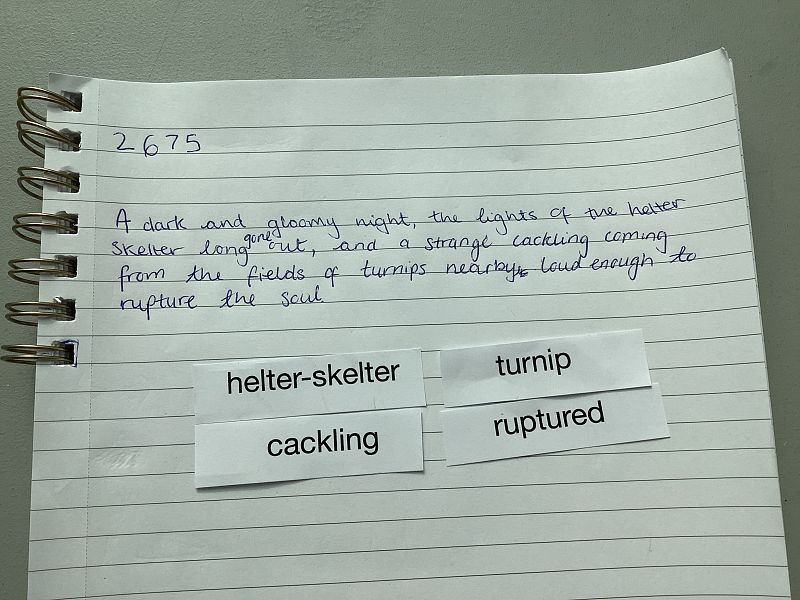 2675
A dark and gloomy night, the lights of the helter
skelter long gone out, and a strange cackling coming
from the fields of turnips nearby, loud enough to
rupture the soul
helter-skelter
turnip
cackling
ruptured